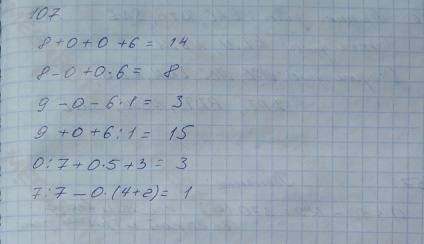 107
8+0+0+6= 14
8-0+0·6= 8
9-0-6·1= 3
9+0+6:1= 15
0:7+0·5+3= 3
7:7-0·(4+2)= 1